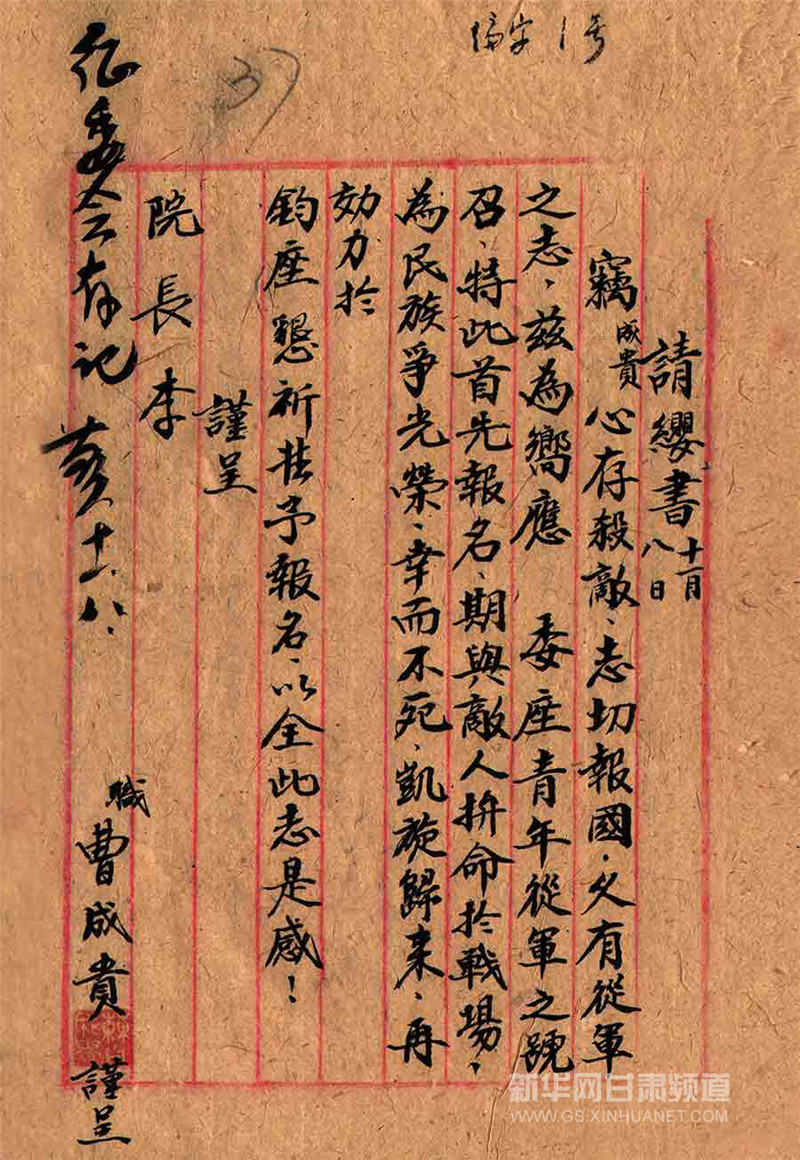 编字1号
37
請纓書 十一月八日
竊成貴心存殺敵、志切報國、久有從軍
之志，兹為嚮應 委座青年從軍之號
召、特此首先報名、期與敵人拚命於戰場、
為民族爭光榮、幸而不死、凱旋歸来、再
効力於
鈞座懇祈准予報名、以全此志是感！
謹呈
院長李
職曹成貴 謹呈
征委会存记 十一、八、
新华网甘肃频道
WWW.GS.XINHUANET.COM